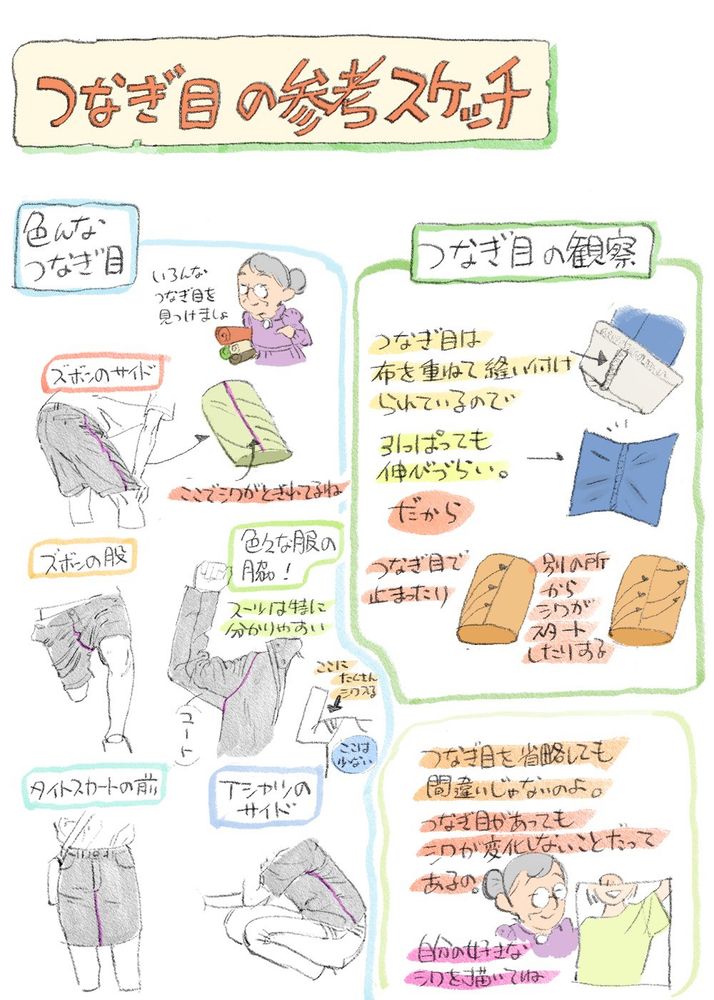 つなぎ目の参考スケッチ
色んな
つなぎ目
いろんな
つなぎ目を
見つけましょ
ズボンのサイド
ここでシワがとぎれてるね
ズボンの股
色々な服の
脇!
スーツは特に
分かりやすい
コート
ここに
たくさん
シワよる
ここは
少ない
タイトスカートの前
Tシャツの
サイド
つなぎ目の観察
つなぎ目は
布を重ねて縫い付け
られているので
引っぱっても
伸びづらい。
だから
つなぎ目で
止まったり
別の所
から
シワが
スタート
したりする
つなぎ目を省略しても
間違いじゃないのよ。
つなぎ目があっても
シワが変化しないことだって
あるの。
自分の好きな
シワを描いてね